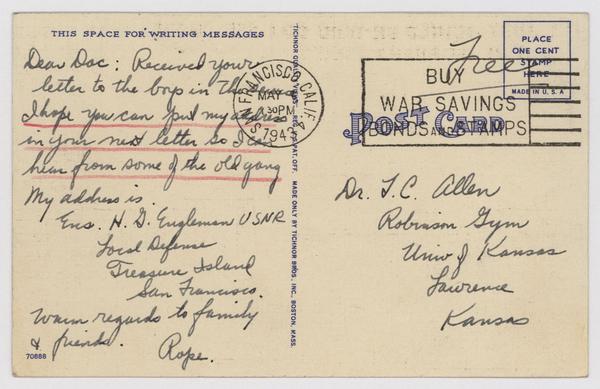 THIS SPACE FOR WRITING MESSAGES
Dear Doc: Received your
letter to the boys in the
I hope you can put my address
in your next letter so I can
hear from some of the old gang
My address is.
Ens. H. G. Engleman USNR
Local Defense
Treasure Island
San Francisco.
Warm regards to family
& friends.
Rope.
70888
MADE ONLY BY TICHNOR BROS., INC., BOSTON, MASS.
SAN FRANCISCO, CALIF. 4
MAY
30PM
1943
BUY
WAR SAVINGS
BONDS AND STAMPS
Free
PLACE
ONE CENT
STAMP
HERE
MADE IN U.S.A
POST CARD
Dr. F. C. Allen
Robinson Gym
Univ of Kansas
Lawrence
Kansas